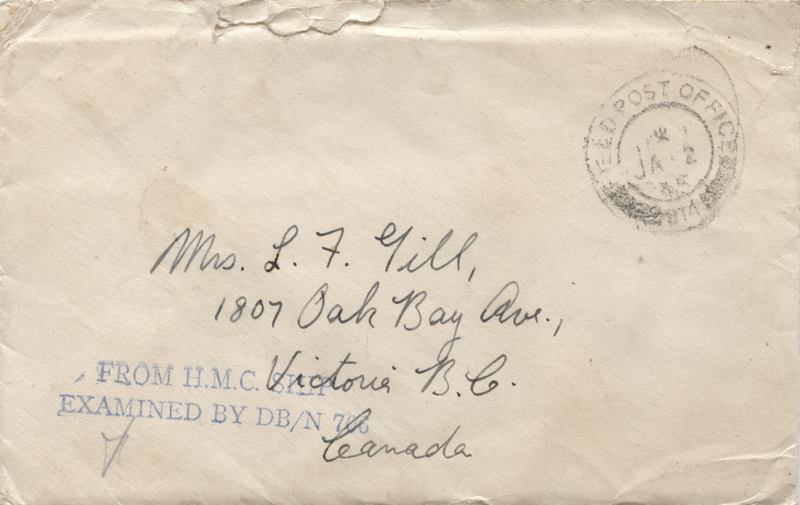 FIELD POST OFFICE
JA 2
45
Mrs. L. F. Gill,
1807 Oak Bay Ave.,
Victoria B.C.
Canada
FROM H.M.C. SHIP
EXAMINED BY DB/N